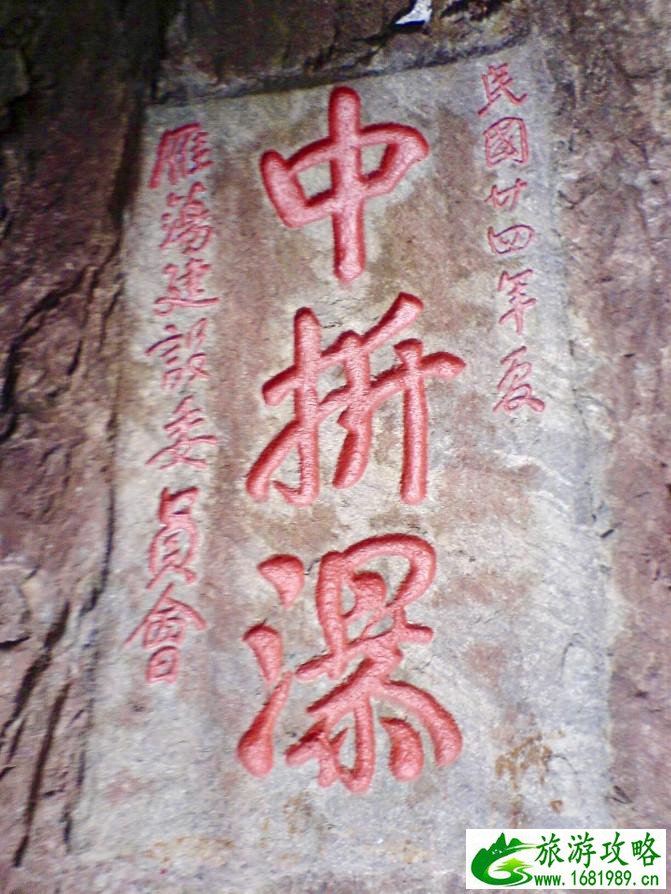 民國廿四年夏
中折瀑
雁蕩建設委員會
旅游攻略
www.1681989.cn